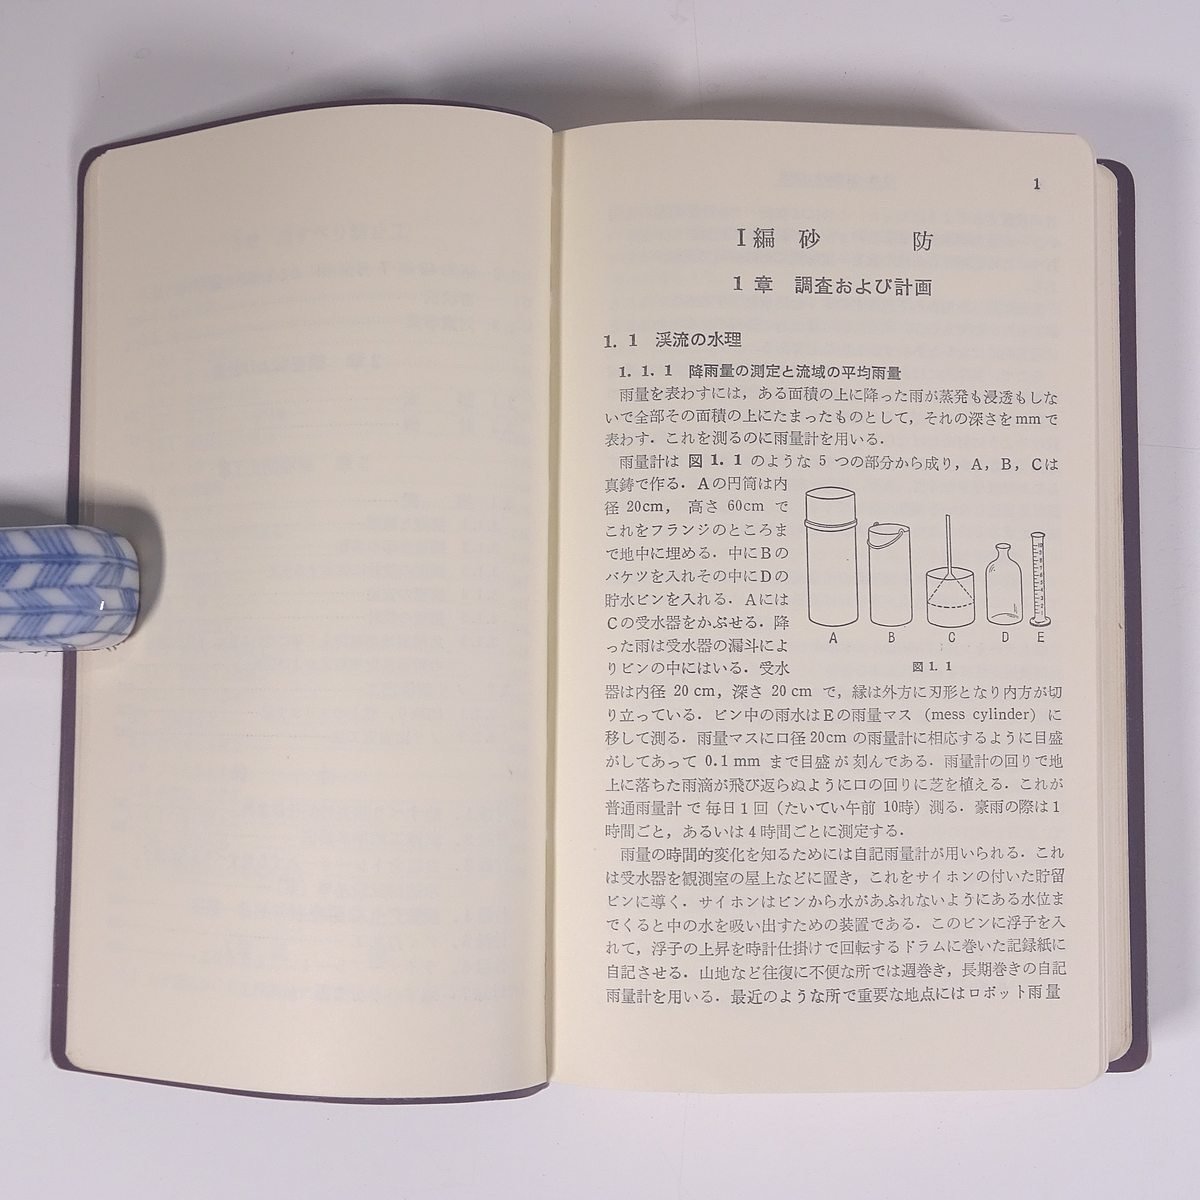 1
I編 砂 防
1 章 調査および計画
1. 1 渓流の水理
1. 1. 1 降雨量の測定と流域の平均雨量
雨量を表わすには，ある面積の上に降った雨が蒸発も浸透もしな
いで全部その面積の上にたまったものとして，それの深さをmmで
表わす．これを測るのに雨量計を用いる．
雨量計は 図 1. 1 のような 5 つの部分から成り，A，B，Cは
真鋳で作る．Aの円筒は内
径 20cm，高さ 60cm で
これをフランジのところま
で地中に埋める．中にBの
バケツを入れその中にDの
貯水ビンを入れる．Aには
Cの受水器をかぶせる．降
った雨は受水器の漏斗によ
りビンの中にはいる．受水
A B C D E
図 1. 1
器は内径 20 cm，深さ 20 cm で，縁は外方に刃形となり内方が切
り立っている．ビン中の雨水はEの雨量マス (mess cylinder) に
移して測る．雨量マスに口径20cm の雨量計に相応するように目盛
がしてあって 0.1 mm まで目盛が刻んである．雨量計の回りで地
上に落ちた雨滴が飛び返らぬように口の回りに芝を植える．これが
普通雨量計で毎日1回（たいてい午前 10時）測る．豪雨の際は1
時間ごと，あるいは4時間ごとに測定する．
雨量の時間的変化を知るためには自記雨量計が用いられる．これ
は受水器を観測室の屋上などに置き，これをサイホンの付いた貯留
ビンに導く．サイホンはビンから水があふれないようにある水位ま
でくると中の水を吸い出すための装置である．このビンに浮子を入
れて，浮子の上昇を時計仕掛けで回転するドラムに巻いた記録紙に
自記させる．山地など往復に不便な所では週巻き，長期巻きの自記
雨量計を用いる．最近のような所で重要な地点にはロボット雨量